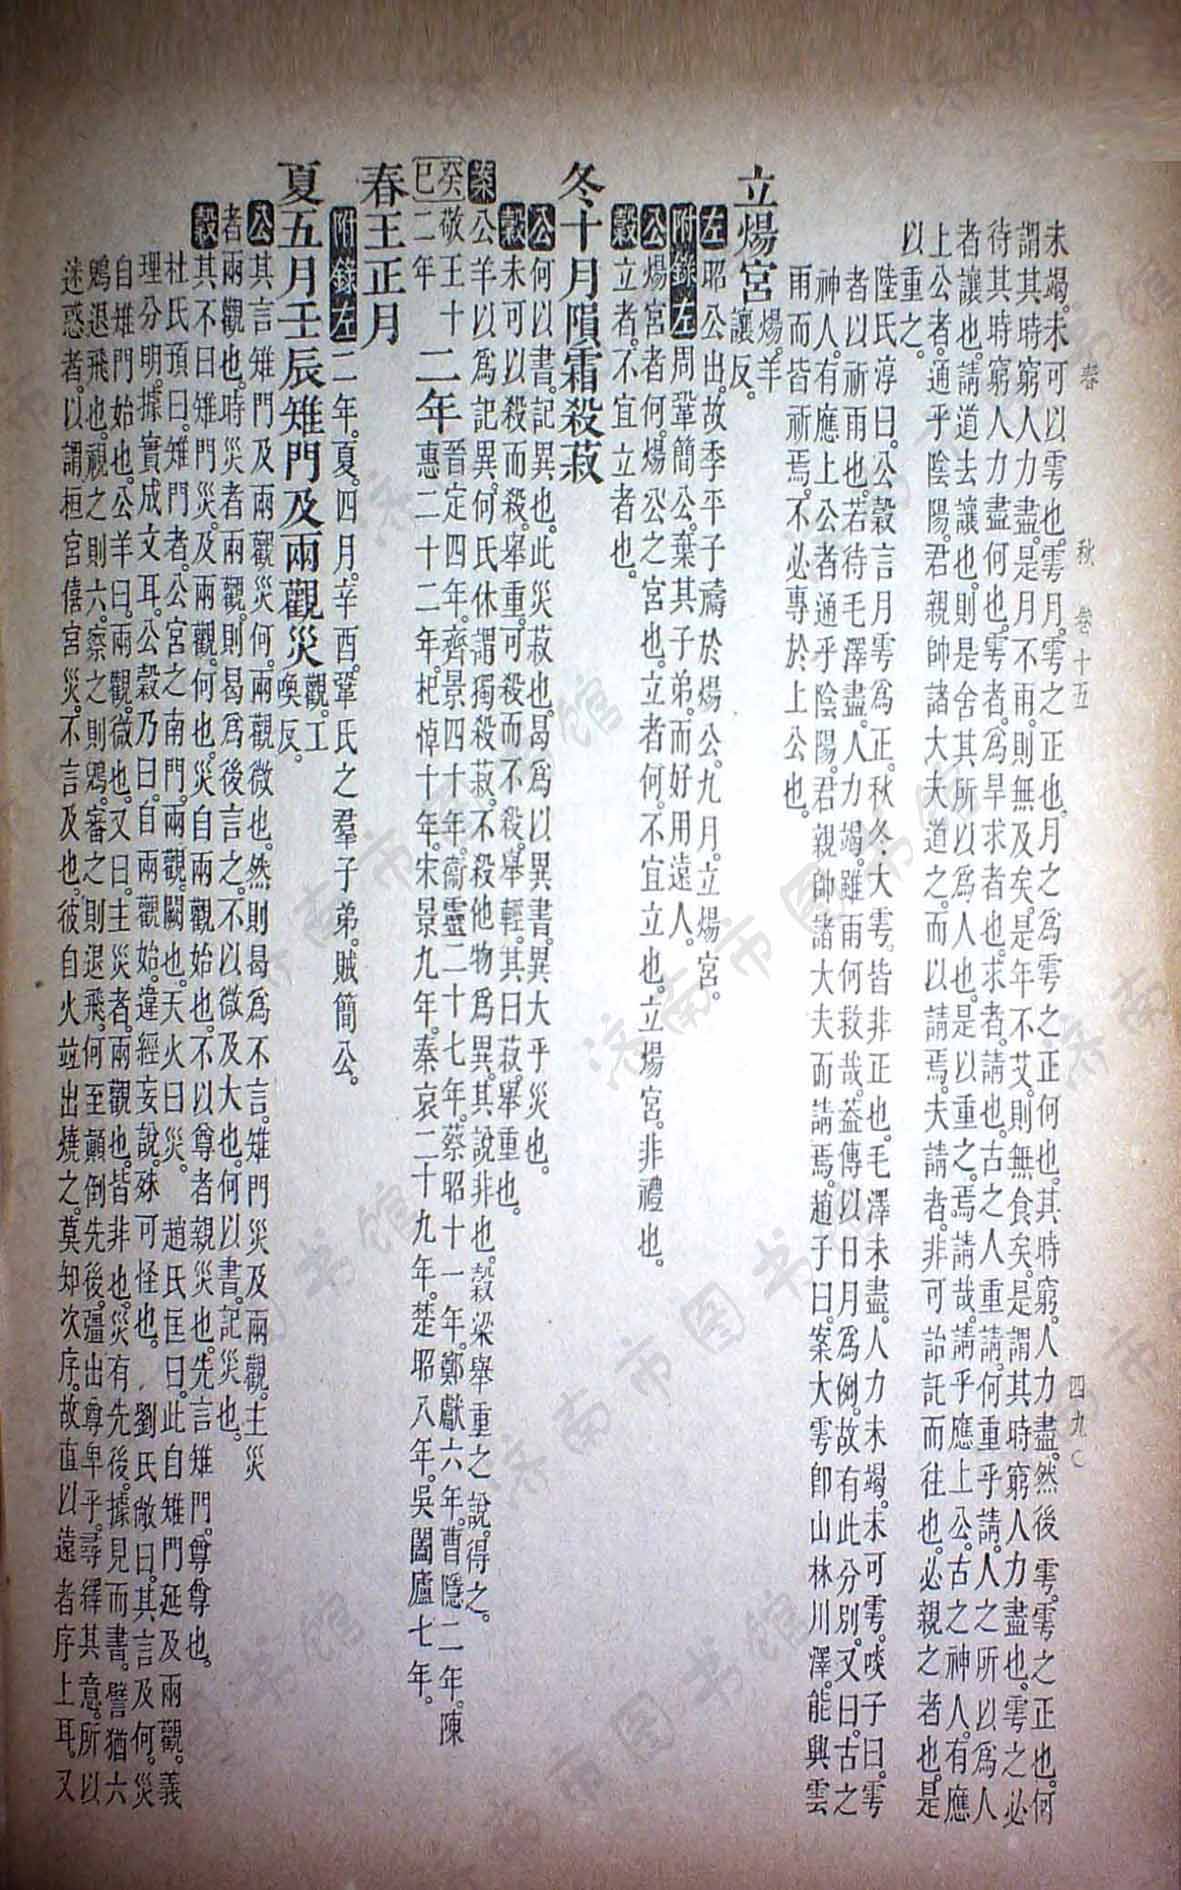 春　秋　卷十五　四九〇
未竭。未可以雩也。雩月。雩之正也。月之爲雩之正何也。其時窮。人力盡。然後雩。雩之正也。何
謂其時窮人力盡。是月不雨。則無及矣。是年不艾。則無食矣。是謂其時窮人力盡也。雩之必
待其時窮人力盡何也。雩者。爲旱求者也。求者。請也。古之人重請。何重乎請。人之所以爲人
者讓也。請道去讓也。則是舍其所以爲人也。是以重之。焉請哉。請乎應上公。古之神人。有應
上公者。通乎陰陽。君親帥諸大夫道之。而以請焉。夫請者。非可詒託而往也。必親之者也。是
以重之。
陸氏淳曰。公穀言月雩爲正。秋冬大雩。皆非正也。毛澤未盡。人力未竭。未可雩。啖子曰。雩
者以祈雨也。若待毛澤盡。人力竭。雖雨何救哉。葢傳以日月爲例。故有此分別。又曰。古之
神人。有應上公者通乎陰陽。君親帥諸大夫而請焉。趙子曰。案大雩卽山林川澤。能興雲
雨而皆祈焉。不必專於上公也。
立煬宮煬。羊讓反。
左昭公出。故季平子禱於煬公。九月。立煬宮。
附錄左周鞏簡公。棄其子弟。而好用遠人。
公煬宮者何。煬公之宮也。立者何。不宜立也。立煬宮。非禮也。
穀立者。不宜立者也。
冬十月隕霜殺菽
公何以書。記異也。此災菽也。曷爲以異書。異大乎災也。
穀未可以殺而殺。舉重。可殺而不殺。舉輕。其曰菽。舉重也。
案公羊以爲記異。何氏休謂獨殺菽。不殺他物爲異。其說非也。穀梁舉重之說。得之。
癸巳敬王十二年二年晉定四年。齊景四十年。衞靈二十七年。蔡昭十一年。鄭獻六年。曹隱二年。陳
惠二十二年。杞悼十年。宋景九年。秦哀二十九年。楚昭八年。吳闔廬七年。
春王正月
附錄左二年。夏。四月。辛酉。鞏氏之羣子弟。賊簡公。
夏五月壬辰雉門及兩觀災觀。工喚反。
公其言雉門及兩觀災何。兩觀微也。然則曷爲不言。雉門災及兩觀。主災
者兩觀也。時災者兩觀。則曷爲後言之。不以微及大也。何以書。記災也。
穀其不曰雉門災。及兩觀。何也。災自兩觀始也。不以尊者親災也。先言雉門。尊尊也。
杜氏預曰。雉門者。公宮之南門。兩觀。闕也。天火曰災。　趙氏匡曰。此自雉門延及兩觀。義
理分明。據實成文耳。公穀乃曰。自兩觀始。違經妄說。殊可怪也。　劉氏敞曰。其言及何。災
自雉門始也。公羊曰。兩觀。微也。又曰。主災者。兩觀也。皆非也。災有先後。據見而書。譬猶六
鶂退飛也。視之則六。察之則鶂。審之則退飛。何至顚倒先後。彊出尊卑乎。尋繹其意。所以
迷惑者。以謂桓宮僖宮災。不言及也。彼自火竝出燒之。莫知次序。故直以遠者序上耳。又